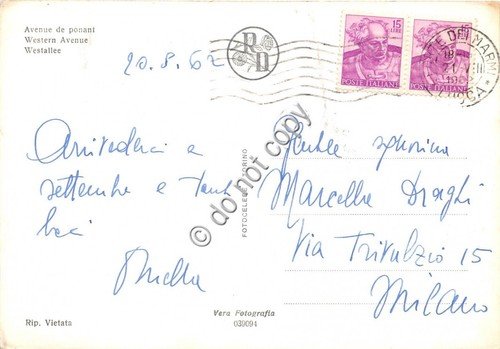 Avenue de ponant
Western Avenue
Westallee
20.8.62
15
LIRE
POSTE ITALIANE
POSTE ITALIANE
Arrivederci a
settembre e tanti
baci
Gentile signorina
Marcella Draghi
Via Trivulzio 15
Milano
© do not copy
FOTOCELERE TORINO
Rip. Vietata
Vera Fotografia
039094